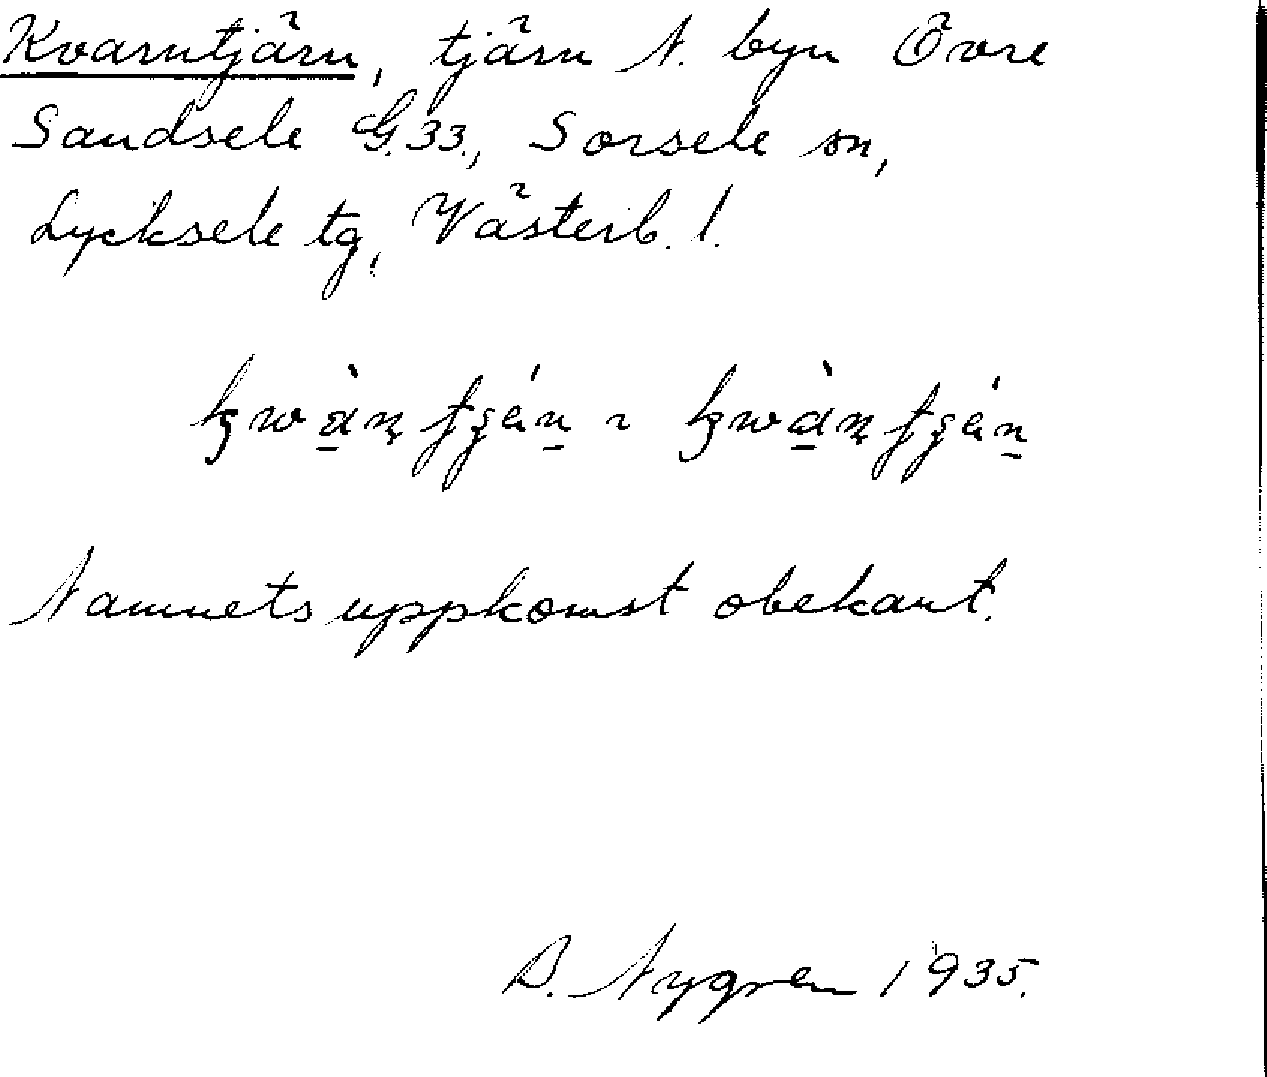 Kvarntjärn, tjärn N. byn Övre
Sandsele G.33., Sorsele sn,
Lycksele tg, Västerb. l.
Namnets uppkomst obekant.
B. Nygren 1935.